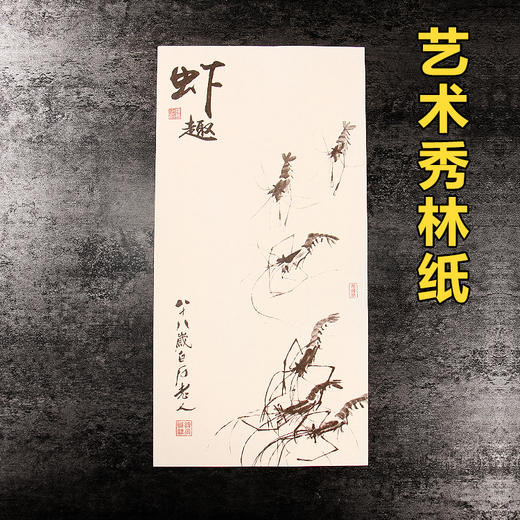 艺术秀林纸
虾
趣
八十八岁白石老人